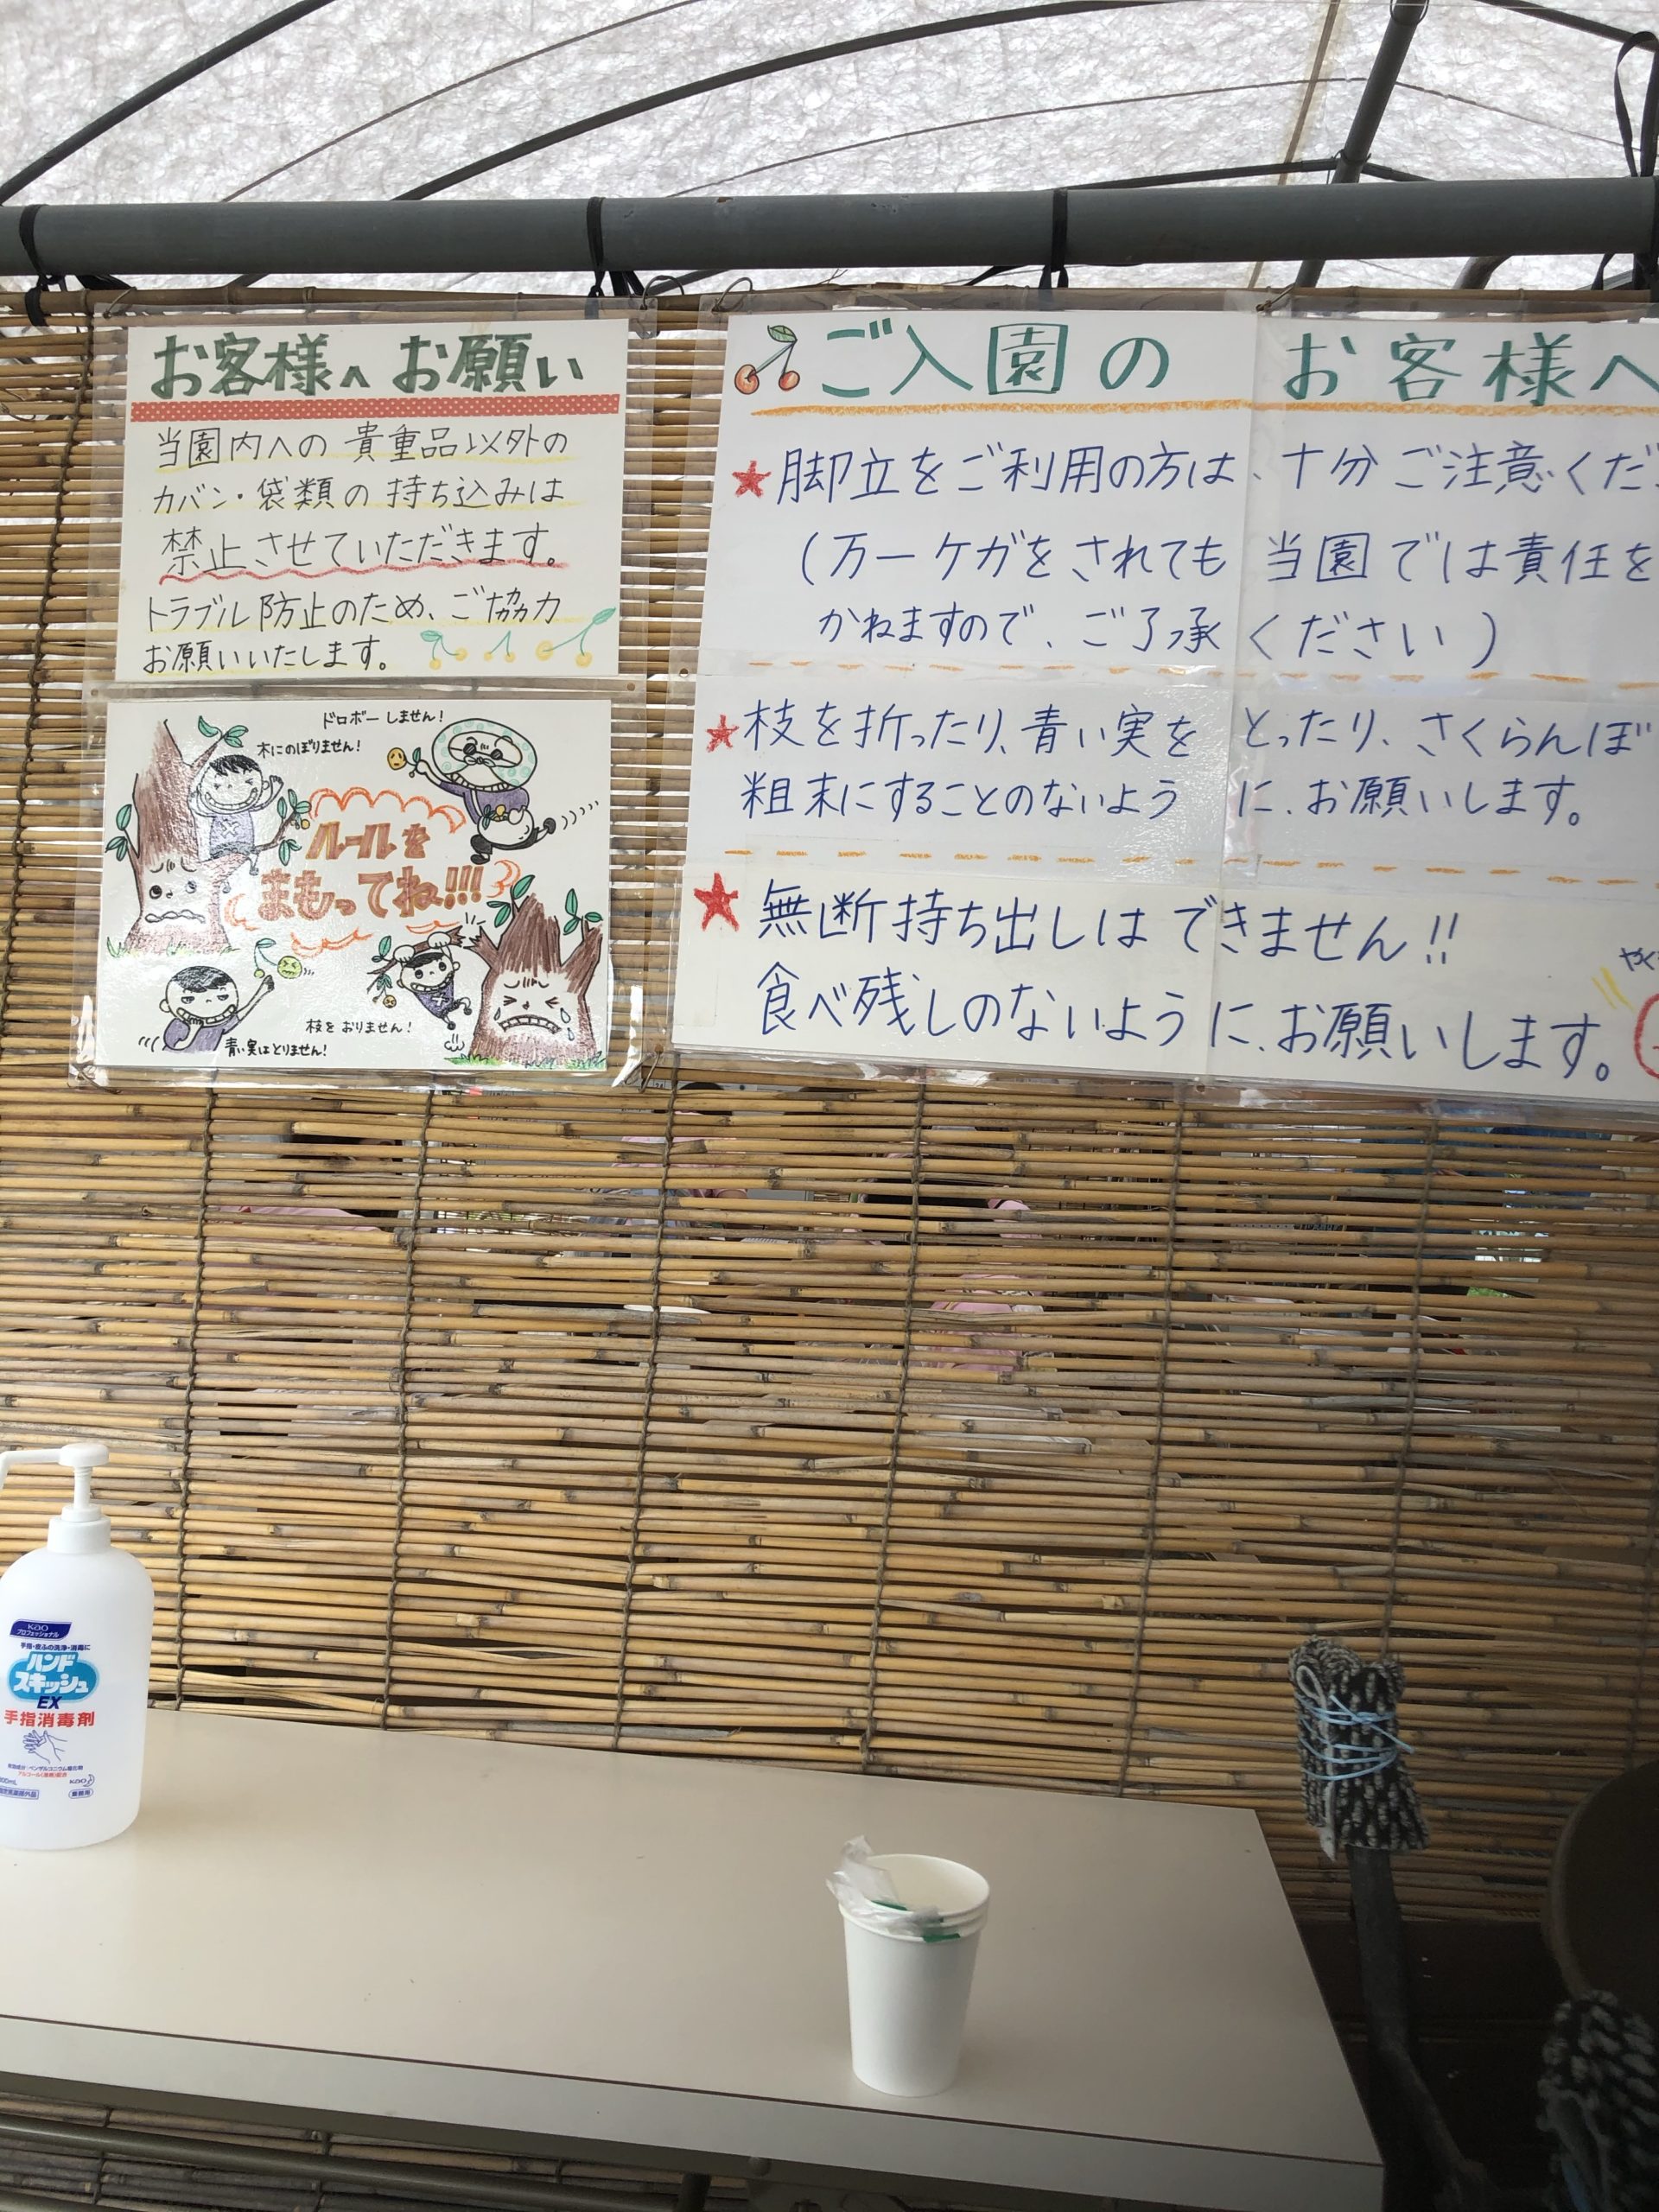 お客様へお願い
当園内への貴重品以外の
カバン・袋類の持ち込みは
禁止させていただきます。
トラブル防止のため、ご協力
お願いいたします。
ドロボーしません!
木にのぼりません!
ルールを
まもってね!!!
枝をおりません!
青い実はとりません!
ご入園の お客様へ
★脚立をご利用の方は、十分ご注意くだ
(万一ケガをされても 当園では責任を
かねますので、ご了承ください)
★枝を折ったり、青い実を とったり、さくらんぼ
粗末にすることのないよう に、お願いします。
★無断持ち出しはできません!!
食べ残しのないように、お願いします。
Kao
プロフェッショナル
手指・皮ふの洗浄・消毒に
ハンド
スキッシュ
EX
手指消毒剤
Kao